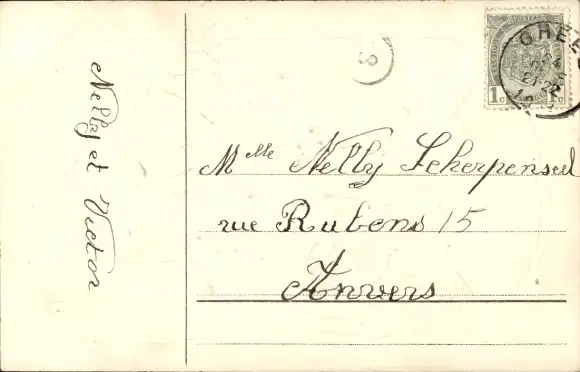 Nelly et Victor
Mlle Nelly Scherpenseel
rue Rubens 15
Anvers
1c 1c
GHEE
21-22
8